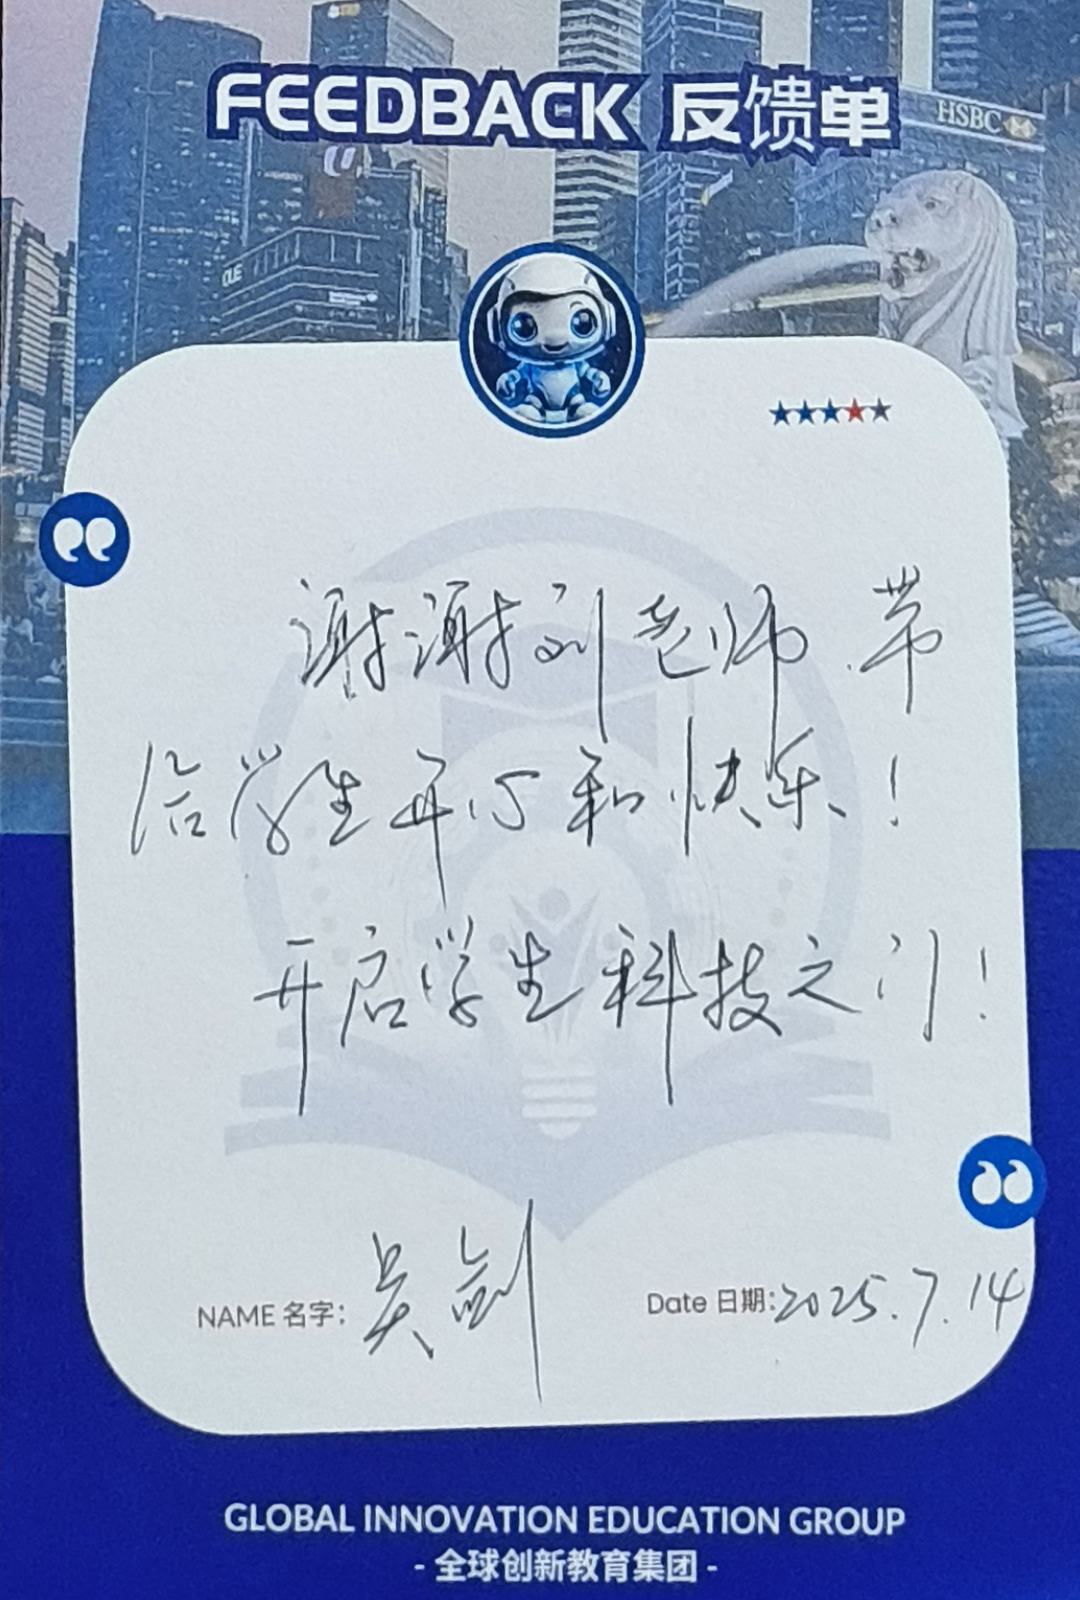 FEEDBACK 反馈单
HSBC
OUE
谢谢刘老师.带
给学生开心和快乐!
开启学生科技之门!
NAME 名字: 吴剑
Date 日期: 2025.7.14
GLOBAL INNOVATION EDUCATION GROUP
- 全球创新教育集团 -